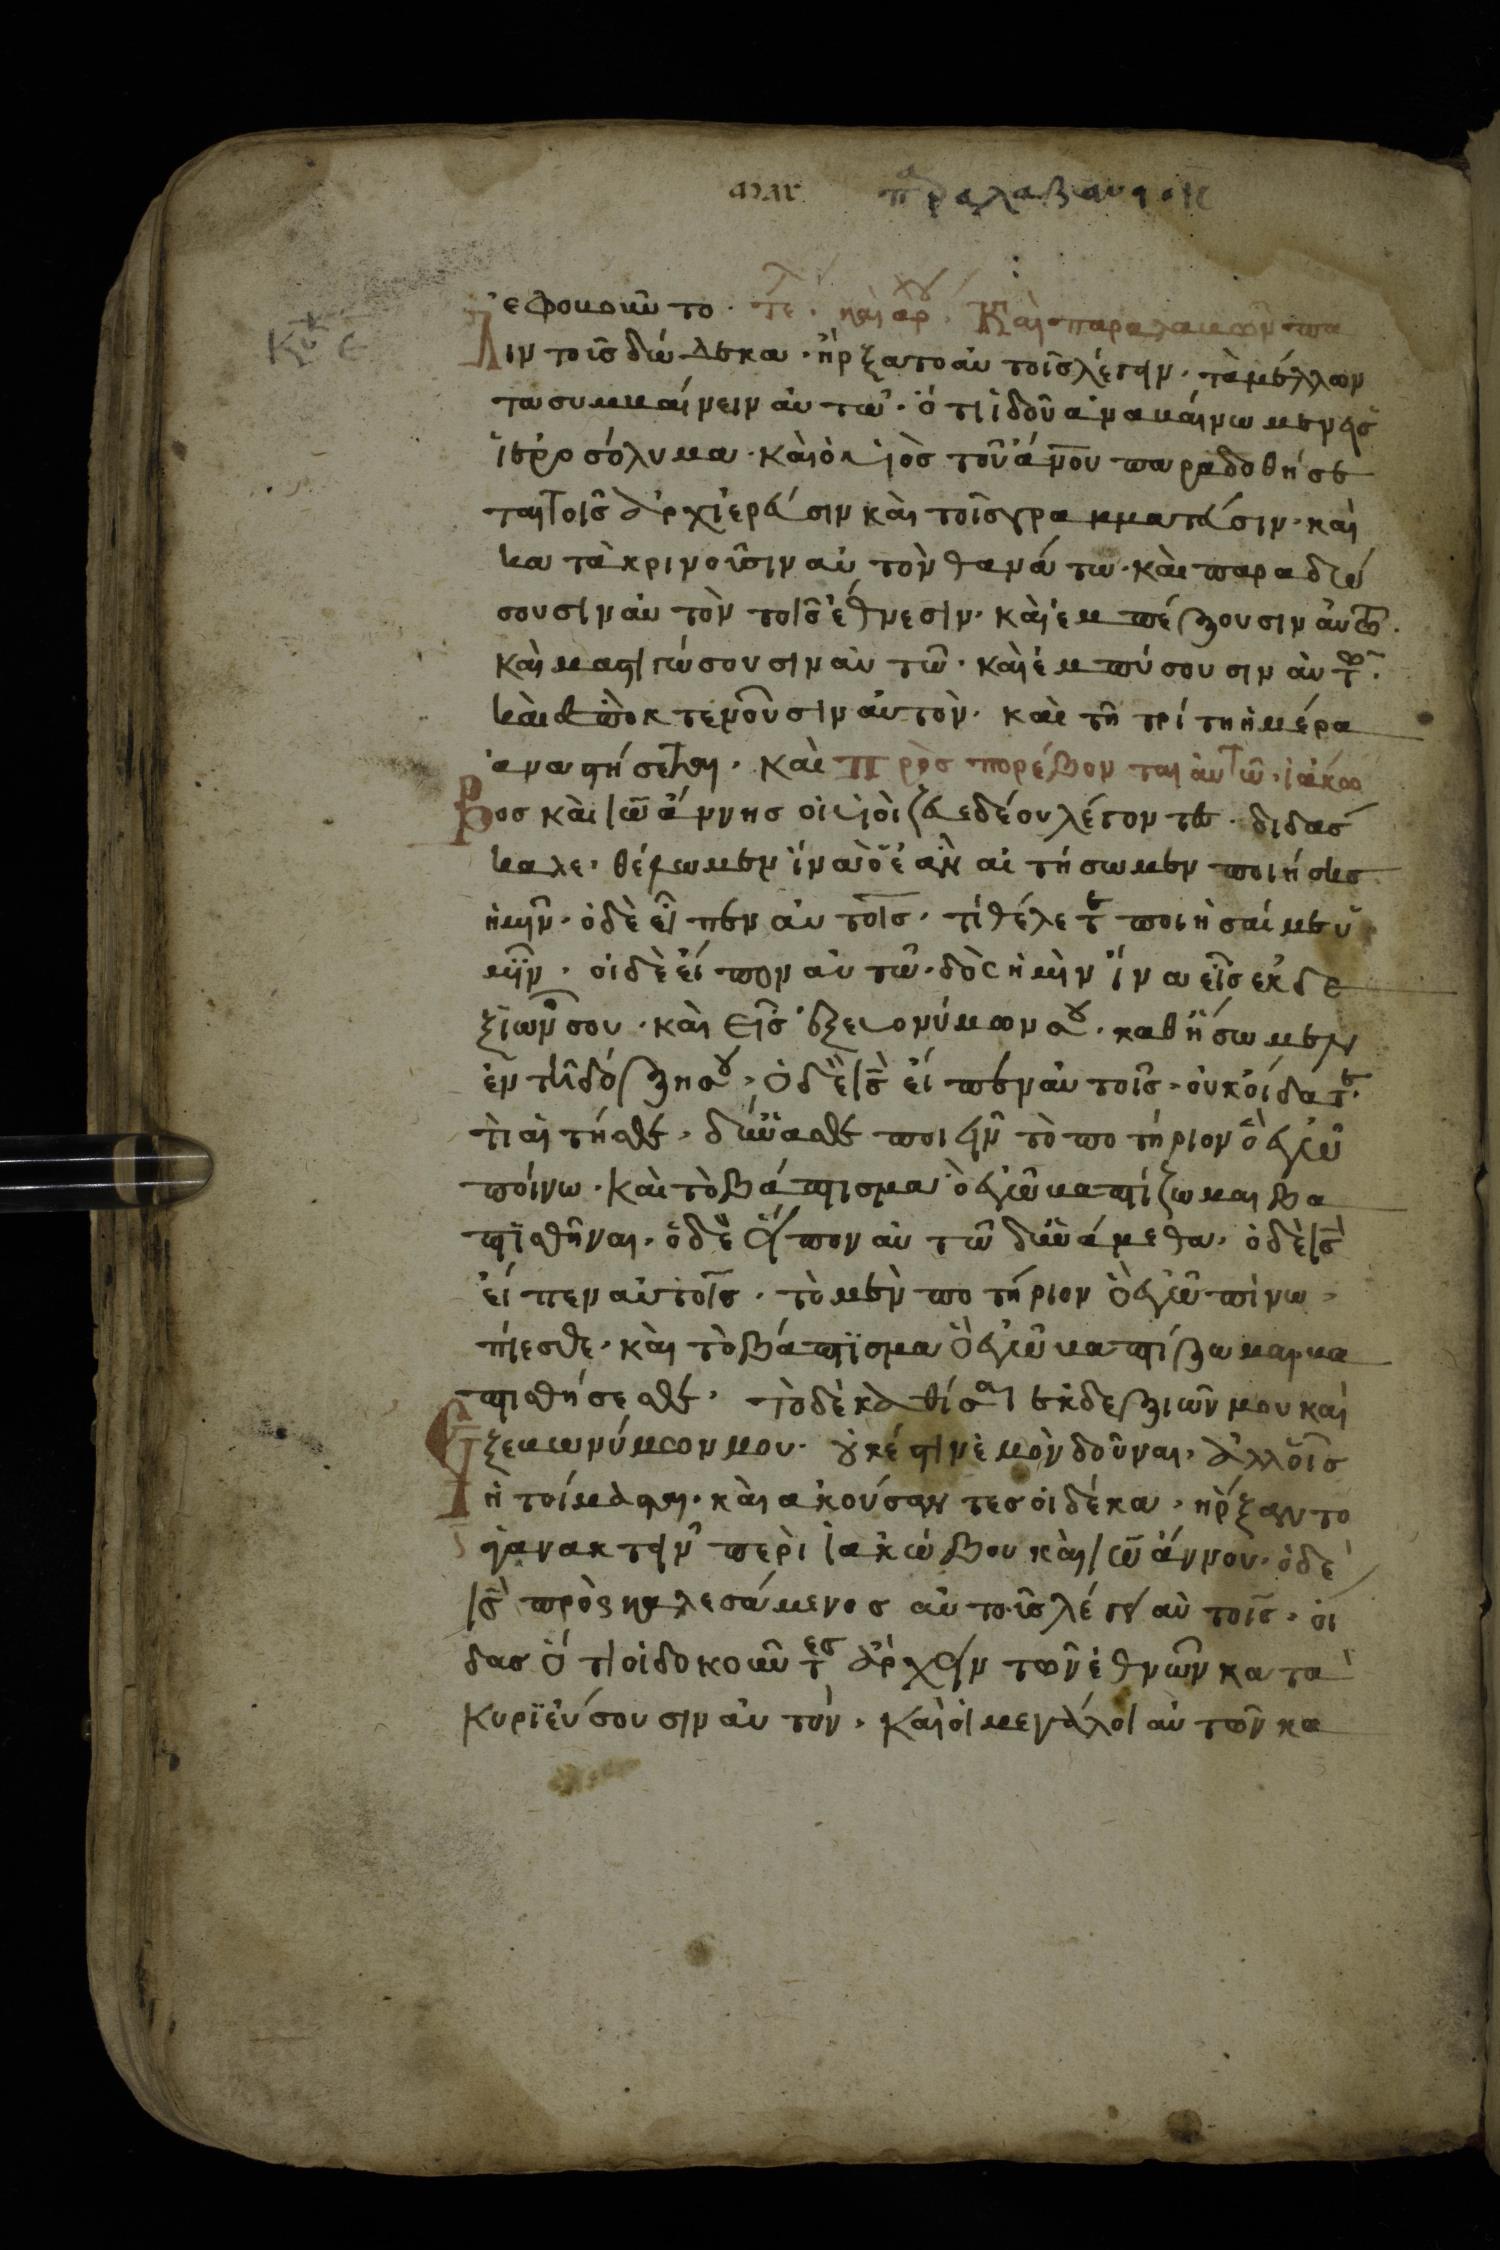 παραλαβαν
Κυ ε
εφοβοῦντο. τε. καὶ ἀρχ. Καὶ παραλαβὼν πά
λιν τοὺς δώδεκα. ἤρξατο αὐτοῖς λέγειν. τὰ μέλλον
τα συμβαίνειν αὐτῶ. ὅτι ἰδοῦ ἀναβαίνωμεν εἰς
ἱεροσόλυμα. καὶ ὁ υἱὸς τοῦ ἀνου παραδοθήσε
ται τοῖς ἀρχιερεύσιν καὶ τοῖς γραμματεύσιν. καὶ
κατακρινοῦσιν αὐτὸν θανάτω. καὶ παραδώ
σουσιν αὐτὸν τοῖς ἔθνεσιν. καὶ ἐμπέξουσιν αὐτῶ.
καὶ μαστιγώσουσιν αὐτῶ. καὶ ἐμπτύσουσιν αὐτῶ.
καὶ ἀποκτενοῦσιν αὐτόν. καὶ τῆ τρίτη ἡμέρα
ἀναστήσεται. Καὶ προσπορέβονται αὐτῶ. ἰάκω
βος καὶ ἰωάννης οἱ υἱοὶ ζεβεδέου λέγοντες. διδάσ
καλε. θέλωμεν ἵνα ὃ ἐὰν αἰτήσωμεν ποιήσεις
ἡμῖν. ὁ δὲ εἶπεν αὐτοῖς. τί θέλετε ποιήσαί με ὑ
μῖν. οἱ δὲ εἶπον αὐτῶ. δὸς ἡμὶν ἵνα εἷς ἐκ δε
ξιῶν σου. καὶ εἷς ἐξ εὐονύμων σου. καθήσωμεν
ἐν τῆ δόξη σου. ὁ δὲ ις εἶπεν αὐτοῖς. οὐκ οἴδατε
τί αἰτήσθε. δύνασθε ποιεῖν τὸ ποτήριον ὃ ἐγὼ
πίνω. καὶ τὸ βάπτισμα ὃ ἐγὼ βαπτίζωμαι βα
πτισθῆναι. ὁ δὲ εἶπον αὐτῶ δυνάμεθα. ὁ δὲ ις
εἶπεν αὐτοῖς. τὸ μὲν ποτήριον ὃ ἐγὼ πίνω.
πίεσθε. καὶ τὸ βάπτισμα ὃ ἐγὼ βαπτίζωμαι βα
πτισθήσεσθε. τὸ δὲ καθίσαι ἐκ δεξιῶν μου καὶ
ἐξ εὐωνύμωον μου. οὐκ ἔστιν ἐμὸν δοῦναι. ἀλλ οἷς
ἡτοίμασται. καὶ ἀκούσαντες οἱ δέκα. ἤρξαντο
ἀγανακτεῖν περὶ ἰακώβου καὶ ἰωάννου. ὁ δὲ
ις προσκαλεσάμενος αὐτοὺς λέγει αὐτοῖς. οἴ
δας ὅτι οἱ δοκοῦντες ἄρχειν τῶν ἐθνῶν κατα
κυριεύσουσιν αὐτόν. καὶ οἱ μεγάλοι αὐτῶν κα